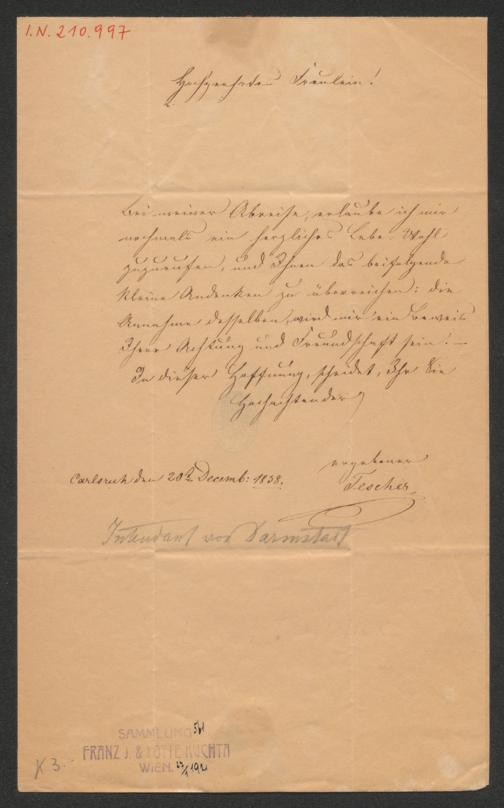 I.N. 210.997
Hochgeehrtes Fräulein!
Bei meiner Abreise, erlaube ich mir
nochmals ein herzliches Lebe-Wohl
zuzurufen, und Ihnen das beifolgende
kleine Andenken zu überreichen: die
Annahme desselben, wird mir ein Beweis
Ihrer Achtung und Freundschaft sein! —
In dieser Hoffnung, scheidet, Ihr Sie
Hochachtender
ergebener
Carlsruh den 20t Decemb: 1838.
Tescher
Intendant von Darmstadt
SAMMLUNG
FRANZ J. & LOTTE KUCHTA
WIEN.
K 3.-